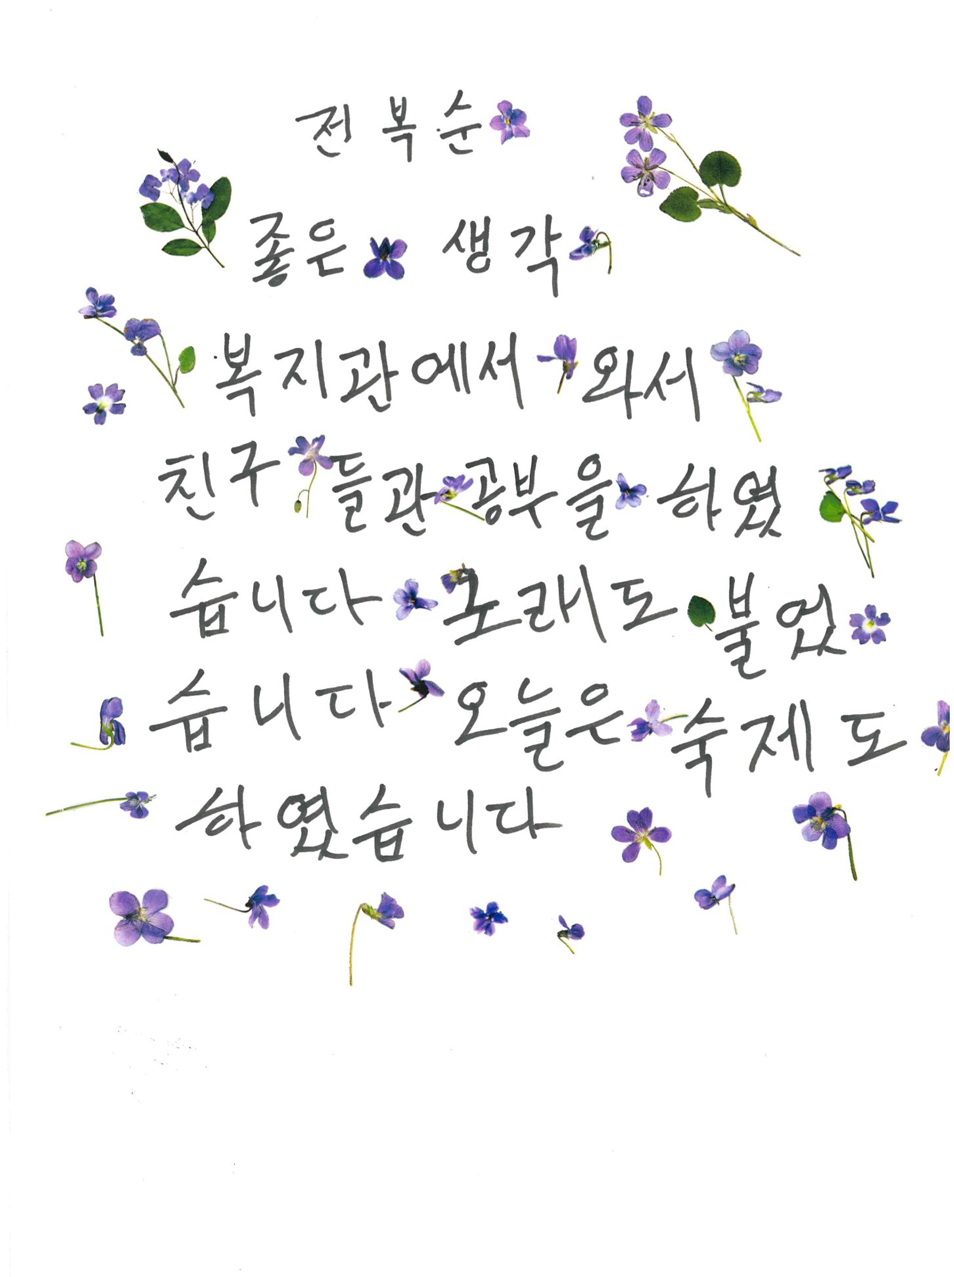 전복순
좋은 생각
복지관에서 와서
친구들관 공부을 하였
습니다 노래도 불었
습니다 오늘은 숙제도
하였습니다